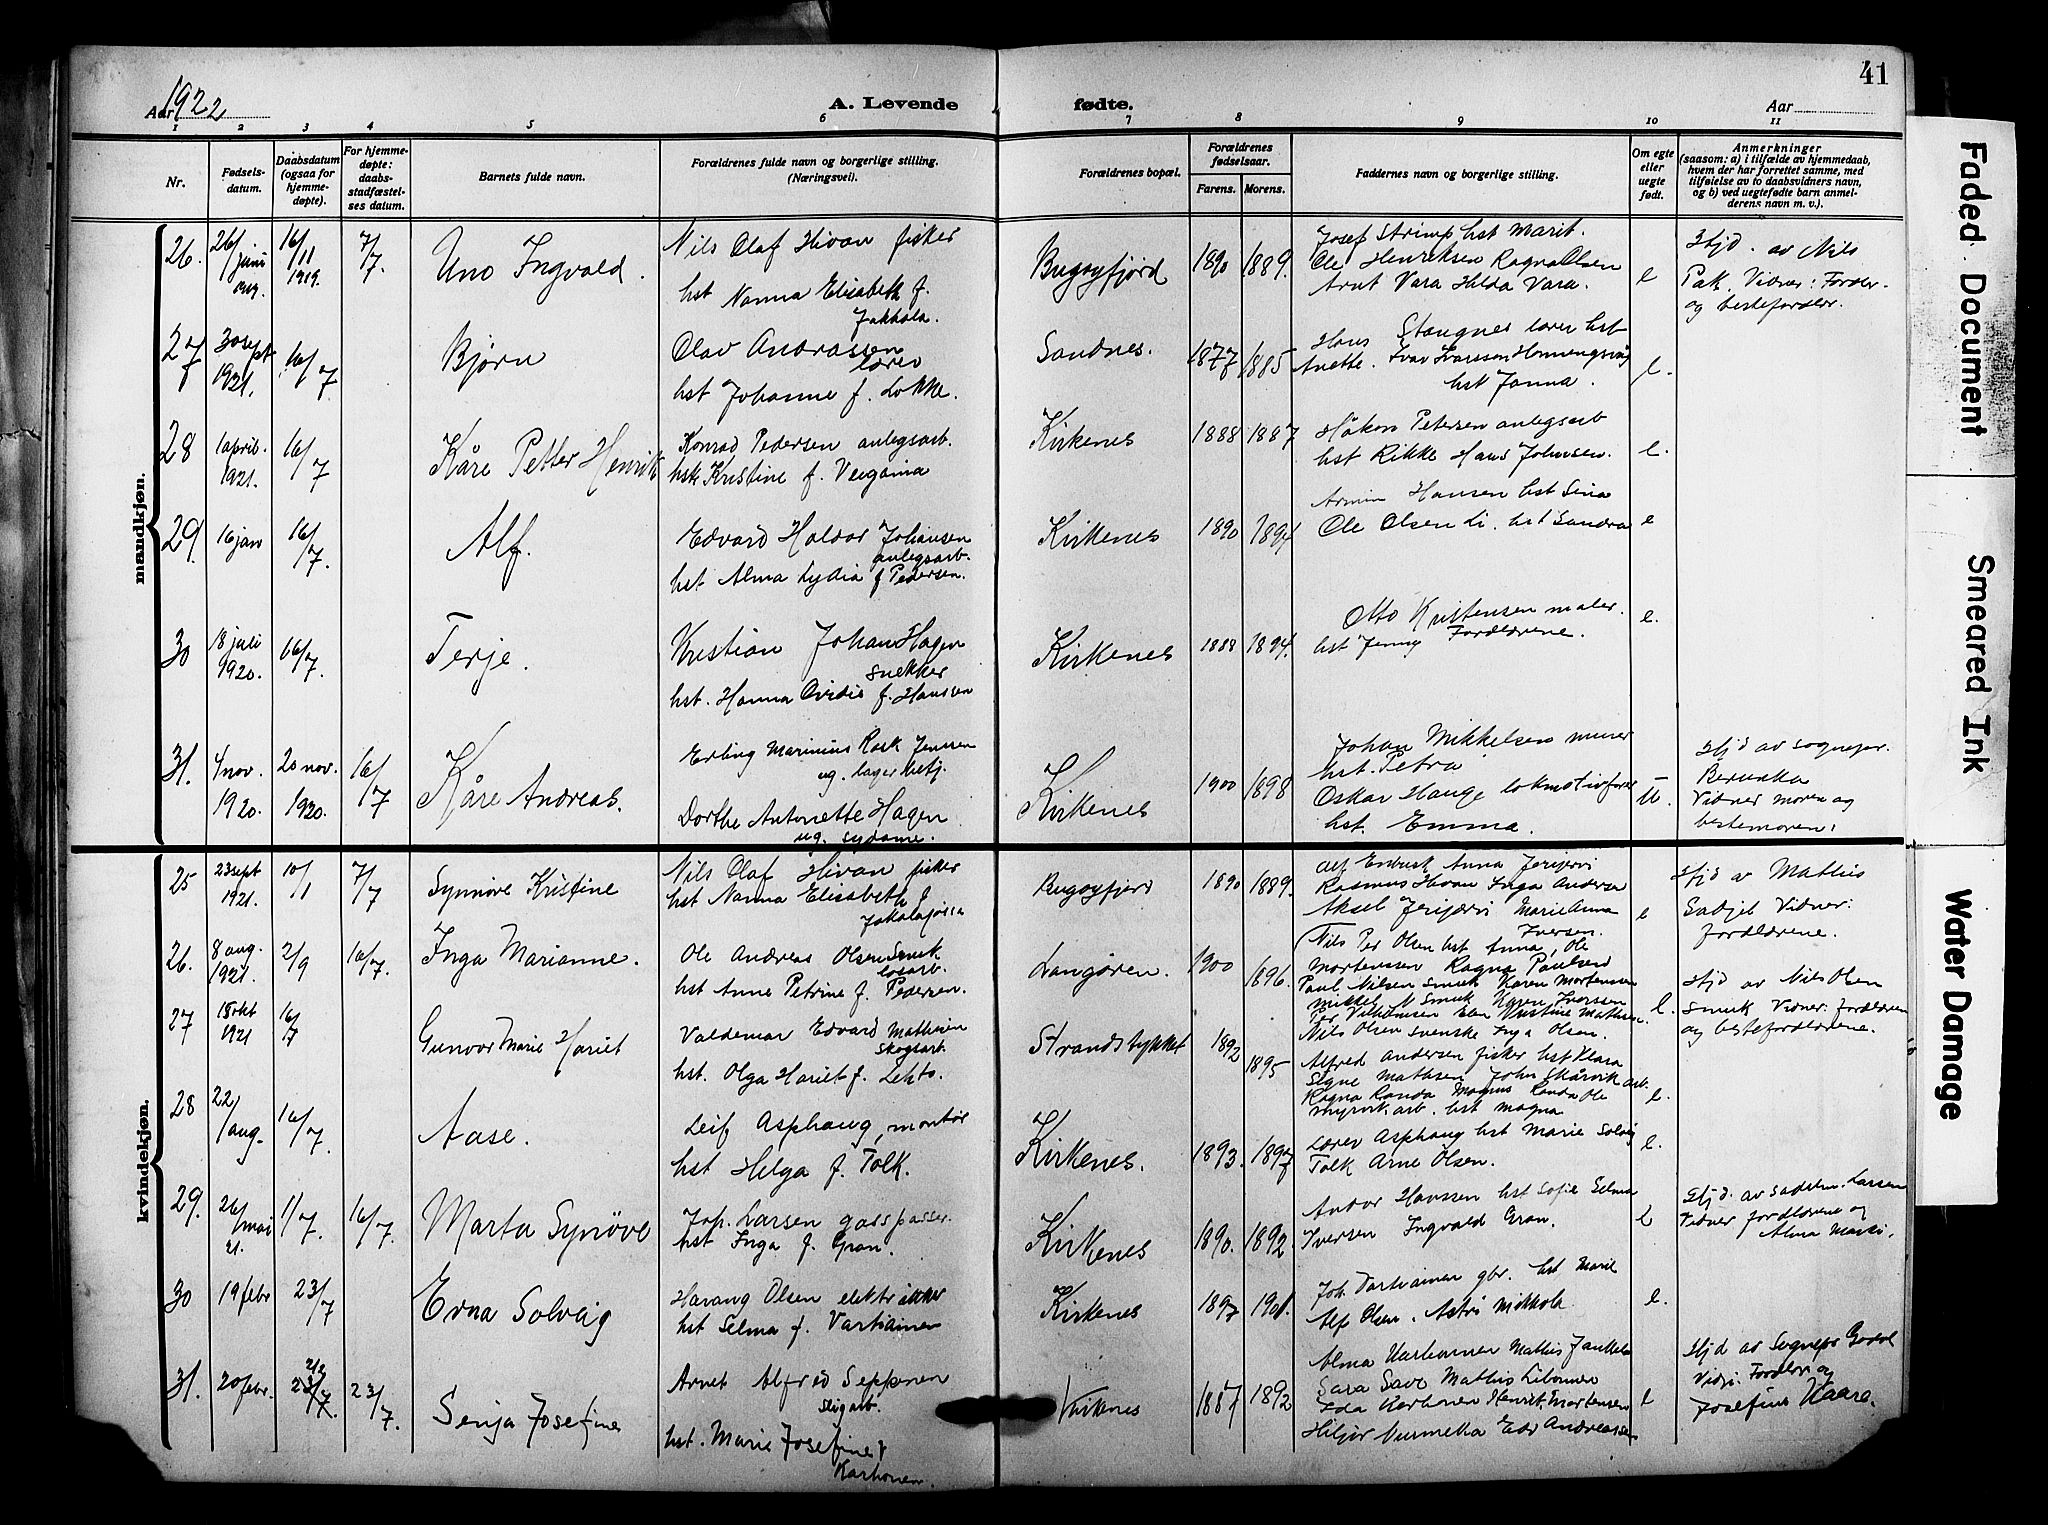 41
Aar 1922
A. Levende fødte.
Aar
1 2 3 4 5 6 7 8 9 10 11
Nr.
Fødsels-
datum.
Daabsdatum
(ogsaa for
hjemme-
døpte).
For hjemme-
døpte:
daabs-
stadfæstel-
ses datum.
Barnets fulde navn.
Forældrenes fulde navn og borgerlige stilling.
(Næringsvei).
Forældrenes bopæl.
Forældrenes
fødselsaar.
Farens. Morens.
Faddernes navn og borgerlige stilling.
Om egte
eller
uegte
født.
Anmerkninger
(saasom: a) i tilfælde av hjemmedaab,
hvem der har forrettet samme, med
tilføielse av to daabsvidners navn,
og b) ved uegtefødte barn anmel-
derens navn m. v.).
mandkjøn.
26. 26/juni 16/11 1919. 7/7. Uno Ingvald.
Nils Olaf Hivan fisker
hst Nanna Elisabeth f.
Jakkola.
Bugøyfjord 1890 1889.
Josef Strimp hst Marit.
Ole Henriksen Ragna Olsen
Arnt Vara Hilda Vara. e
Hjd. av Nils
Pak. Vidner: Forældr.
og besteforældr.
27 30 sept 1921. 16/7. Bjørn
Olav Andrassen
lærer
hst Johanne f. Løkke.
Sandnes. 1877 1885
Hans Stangnes lærer hst
Anette. Ivar Ivarsson Honningsvåg
hst Janna. e.
28 1 april. 1921. 16/7 Kåre Petter Henrik
Konrad Pedersen anlegsarb.
hst Kristine f. Veigama
Kirkenes 1888 1887
Håkon Petersen anlegsarb
hst Rikke Hans Johnsen. e.
29. 16 jan 16/7. Alf.
Edvard Haldor Johansen
anlegsarb.
hst Alma Lydia f Pedersen.
Kirkenes 1890 1894
Armin Hansen hst Sina
Ole Olsen Li. hst Sandra e
30 18 juli 1920. 16/7. Terje.
Kristian Johan Hagen
snekker
hst. Hanna Ovidie f. Hansen
Kirkenes 1888 1894.
Otto Kristensen maler.
hst Jenny Forældrene. e.
31. 4 nov. 1920. 20 nov. 1920. 16/7 Kåre Andreas.
Erling Marinius Rask Jensen
ug. lagerbetj.
Dorthe Antonette Hagen
ug. sydame.
Kirkenes 1900 1898
Johan Mikkelsen murer
hst. Petra
Oskar Hauge lokomotivfører
hst. Emma. U.
Hjd av sognepr.
Beronka
Vidner moren og
bestemoren.
kvindekjøn.
25 23 sept 1921. 10/1 7/7 Synnøve Kristine
Nils Olaf Hivan fisker
hst Nanna Elisabeth f
Bugøyfjord 1890 1889.
Anna Jerijervi
Rasmus Hivan Inga Andersen
Aksel Jerijervi Marie Anna
Iversen. e
Hjd av Mathis
Sabjel Vidner:
forældrene.
26. 8 aug. 1921. 2/9 16/7. Inga Marianne.
Ole Andreas Olsen Smuk
løsarb.
hst Anne Petrine f. Pedersen.
Langøren. 1900 1896.
Nils Per Olsen hst Anna, Ole
Mortenssen Ragna Paulsen
Paul Nilsen Smuk Karen Mortensen
Mikkel N Smuk Karen Iverssen
Per Vilhelmsen Elen Kristine Mathisen.
Nils Olsen Svenske Inga Olsen. e.
Hjd av Nils Olsen
Smuk Vidner: forældrene
og besteforældrene.
27 18 okt 1921 16/7 Gunvor Marie Hariet
Valdemar Edvard Mathisen
skogsarb.
hst. Olga Hariet f. Lehto.
Strandstykket 1892 1895
Alfred Andersen fisker hst Klara
Signe Mathisen John Skårvik arb.
Ragna Randa Magnus Randa Ole
Myrvik arb. hst Magna e.
28 22/aug. 16/7. Aase.
Leif Asphaug, montør
hst Helga f. Tolk.
Kirkenes. 1893. 1897
Lærer Asphaug hst Marie Solvig
Tolk Arne Olsen. e.
29. 26/mai 21. 11/7. 16/7. Marta Synøve
Joh. Larsen gasspasser.
hst Inga f. Gran.
Kirkenes 1890. 1892
Andor Hanssen hst Sofie Selma
Iversen Ingvald Gran. e
Hjd. av Larsen
Vidner forældrene og
Alma
30 19 febr 23/7 Erna Solvåg
Harang Olsen elektrikker
hst Selma f. Vartiainen
Kirkenes 1897 1901.
Joh Vartiainen gbr. hst Marie
Alf Olsen. Astri Mikkola e.
31. 20 febr. 23/7. 23/7. Senja Josefine
Arnet Alfred Seppenen
hst. Marie Josefine f
Karhonen.
Kirkenes 1887 1892
Alma Karhonen Mathis
Sara Savo Mathis
Eda Karhonen Henrik Mortensen
Hiljer Nurmela Edv Andreassen e
Hjd av Sognepr
Vidn: Forældr og
Josefine Kaara.
Faded Document
Smeared Ink
Water Damage